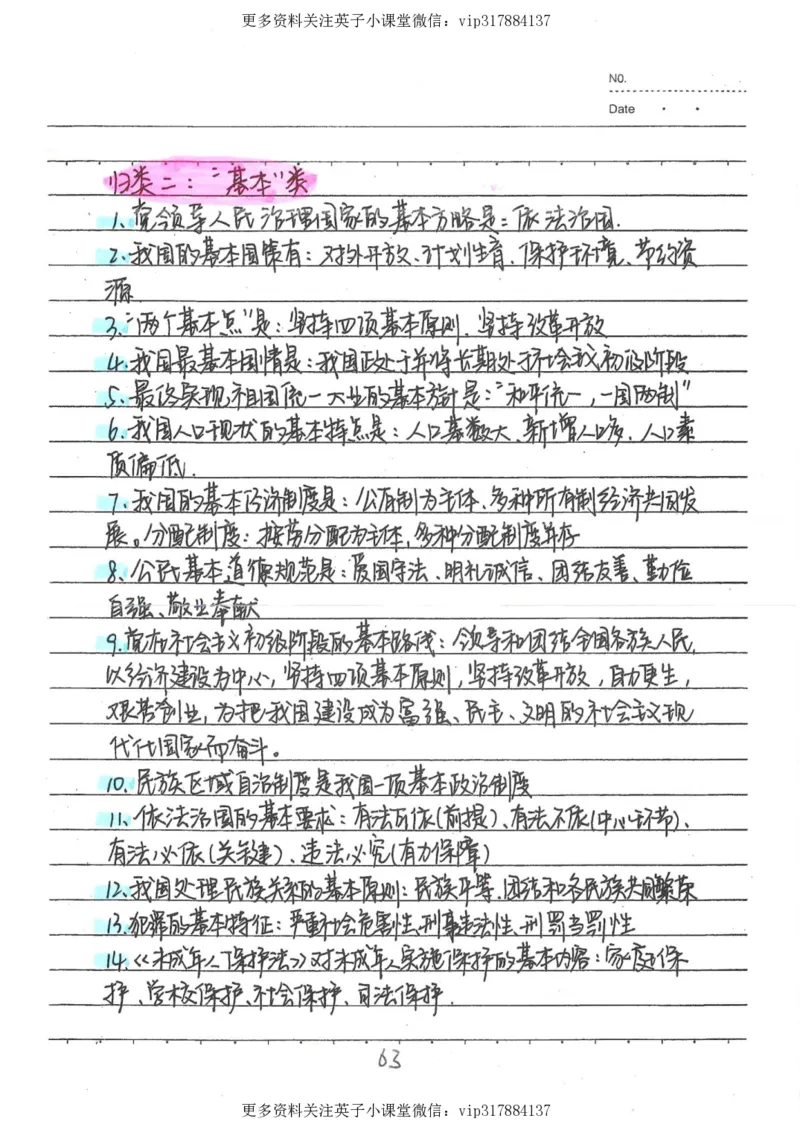 更多资料关注英子小课堂微信：vip317884137
N0.
Date
归类二：“基本”类
1、党领导人民治理国家的基本方略是：依法治国.
2、我国的基本国策有：对外开放、计划生育、保护环境、节约资
源
3、“两个基本点”是：坚持四项基本原则、坚持改革开放
4、我国最基本国情是：我国正处于并将长期处于社会主义初级阶段
5、最终实现祖国统一大业的基本方针是：“和平统一，一国两制”
6、我国人口现状的基本特点是：人口基数大、新增人口多、人口素
质偏低.
7、我国的基本经济制度是：公有制为主体、多种所有制经济共同发
展。分配制度：按劳分配为主体，多种分配制度并存
8、公民基本道德规范是：爱国守法、明礼诚信、团结友善、勤俭
自强、敬业奉献
9、党在社会主义初级阶段的基本路线：领导和团结全国各族人民，
以经济建设为中心，坚持四项基本原则，坚持改革开放，自力更生，
艰苦创业，为把我国建设成为富强、民主、文明的社会主义现
代化国家而奋斗。
10、民族区域自治制度是我国一项基本政治制度
11、依法治国的基本要求：有法可依(前提)、有法不依(中心环节)、
有法必依(关键)、违法必究(有力保障)
12、我国处理民族关系的基本原则：民族平等、团结和各民族共同繁荣
13、犯罪的基本特征：严重社会危害性、刑事违法性、刑罚当罚性
14、《未成年人保护法》对未成年人实施保护的基本内容：家庭保
护、学校保护、社会保护、司法保护.
63
更多资料关注英子小课堂微信：vip317884137